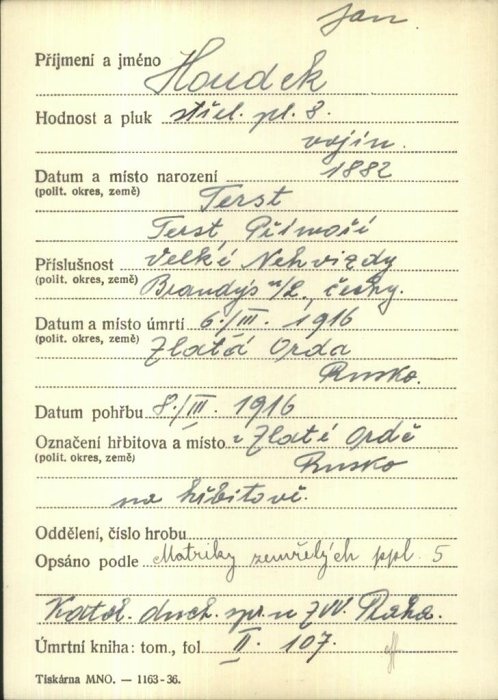 Jan
Příjmení a jméno Houdek
Hodnost a pluk střel. pl. 8.
vojín.
Datum a místo narození 1882
(polit. okres, země) Terst
Terst Přímoří
Příslušnost Velké Nehvizdy
(polit. okres, země) Brandýs n/L., Čechy.
Datum a místo úmrtí 6./III. 1916
(polit. okres, země) Zlatá Orda
Rusko.
Datum pohřbu 8./III. 1916
Označení hřbitova a místo v Zlaté Ordě
(polit. okres, země) Rusko
na hřbitově.
Oddělení, číslo hrobu
Opsáno podle Matriky zemřelých ppl. 5
Katol. duch. spr. u ZVV. Praha.
Úmrtní kniha: tom., fol II. 107.
Tiskárna MNO. — 1163-36.